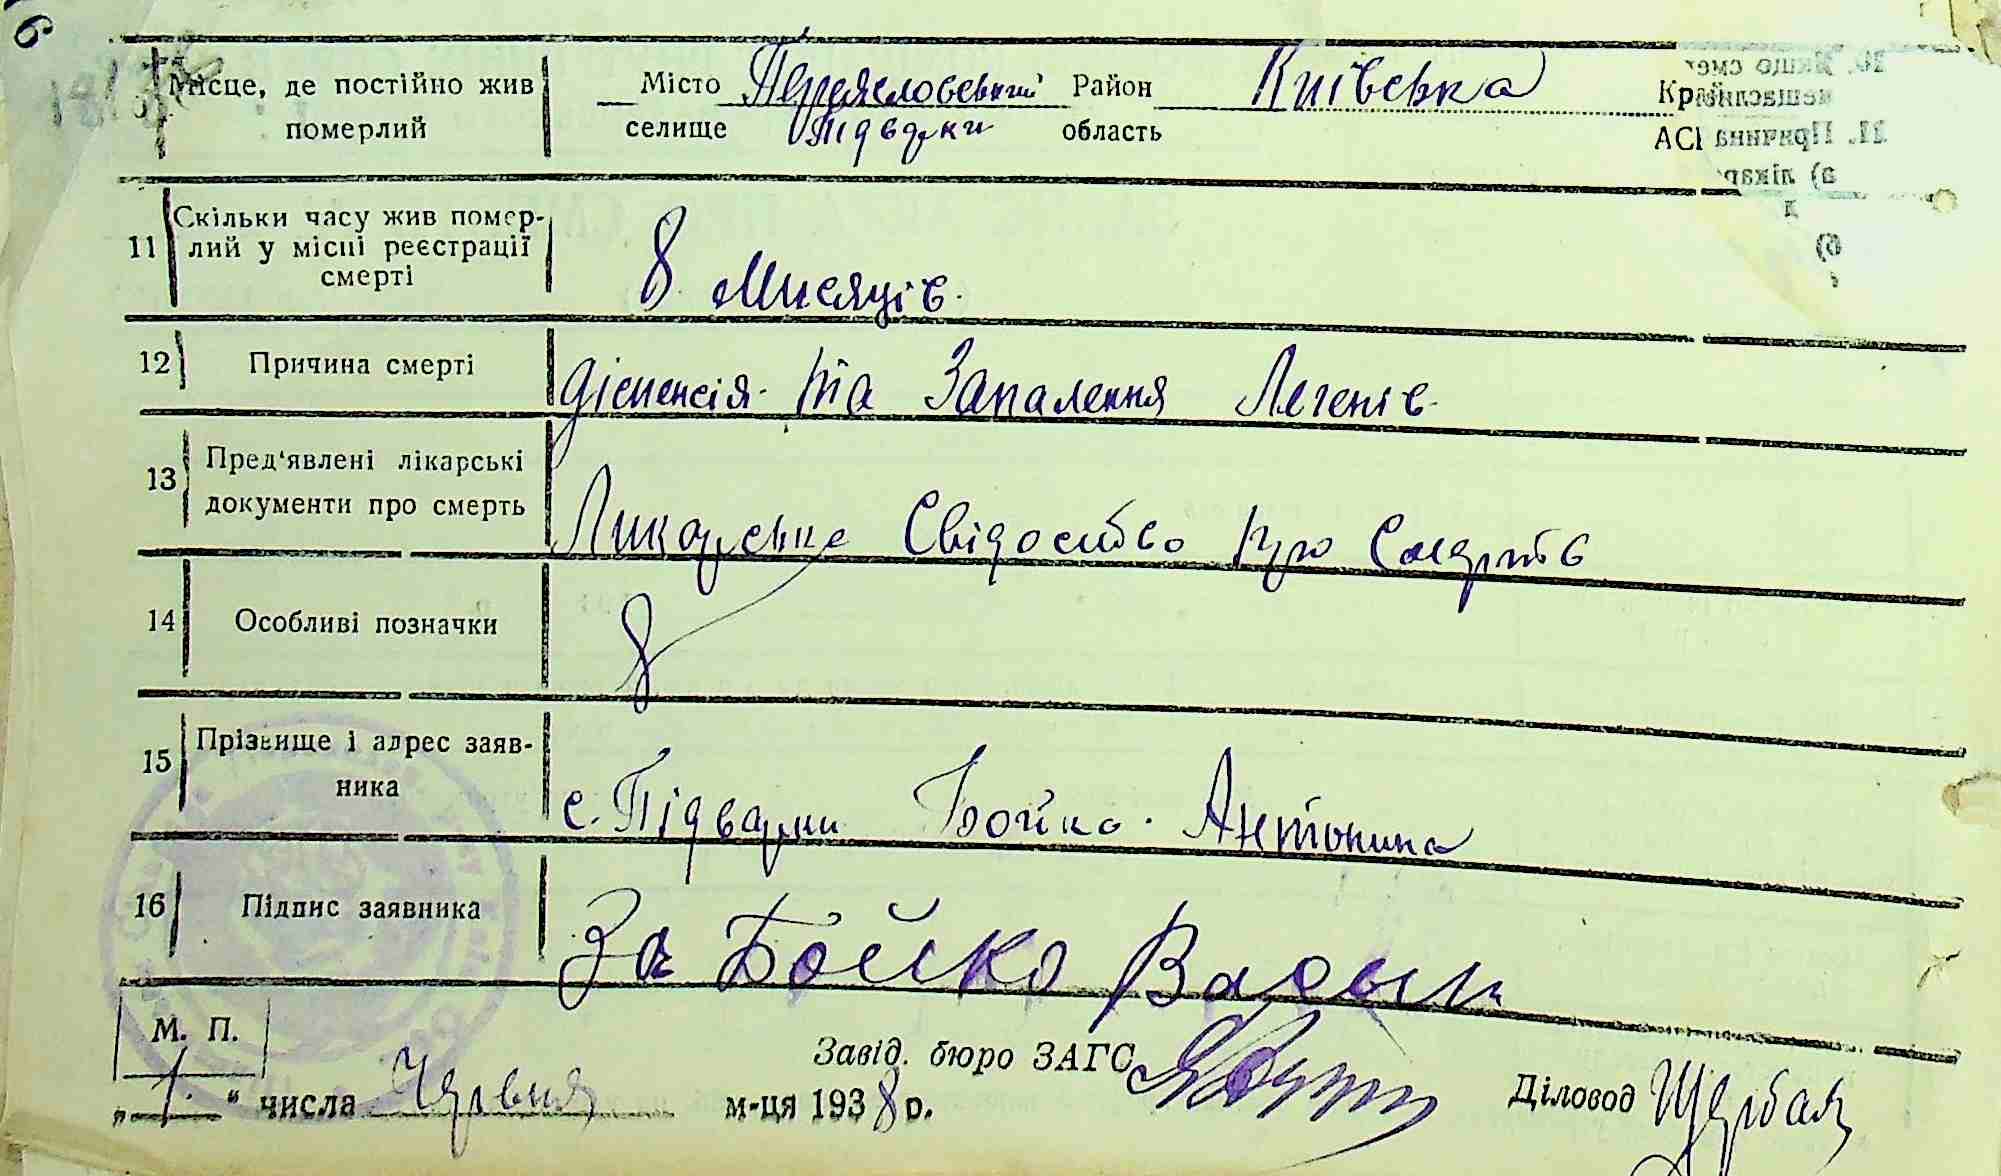 Місце, де постійно жив Місто Переяславський Район Київська Край
померлий селище Підварки область АСР
11 Скільки часу жив помер-
лий у місці реєстрації 8 Мисяців.
смерті
12 Причина смерті діспенсія та Запалення Легенів
13 Пред'явлені лікарські
документи про смерть Ликарське Свідоство про Смерть
14 Особливі позначки
15 Прізвище і адрес заяв-
ника с. Підварки Бойко Антонина
16 Підпис заявника За Бойко
М. П.
Завід. бюро ЗАГС
„1." числа Червня м-ця 1938 р. Діловод Щербак